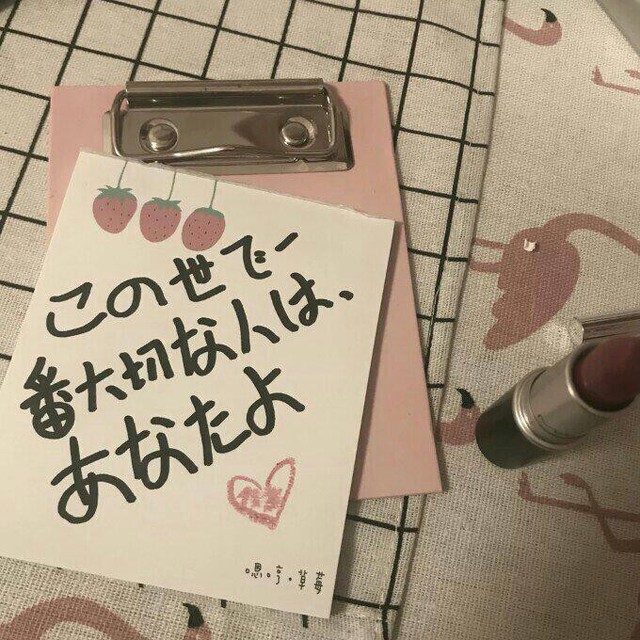 この世で一
番大切な人は、
あなたよ
嗯亨·草莓